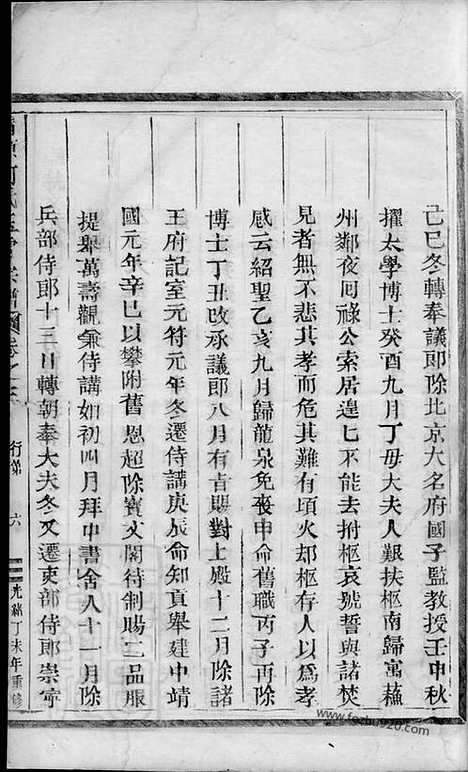 己巳冬轉奉議郎除北京大名府國子監教授壬申秋
擢太學博士癸酉九月丁母大夫人艱扶柩南歸寓蘇
州鄰夜囘祿公索居遑匕不能去拊柩哀號誓與諸焚
見者無不悲其孝而危其難有頃火却柩存人以爲孝
感云紹聖乙亥九月歸龍泉免喪申命舊職丙子再除
博士丁丑改承議郎八月有旨賜對上殿十二月除諸
王府記室元符元年冬遷侍講庚辰命知貢舉建中靖
國元年辛巳以攀附舊恩超除寶文閣待制賜二品服
提舉萬壽觀兼侍講如初四月拜中書舍人十一月除
兵部侍郎十三日轉朝奉大夫冬又遷吏部侍郎崇寧
行第 六
光緒丁未年重修
www.fozhu920.com